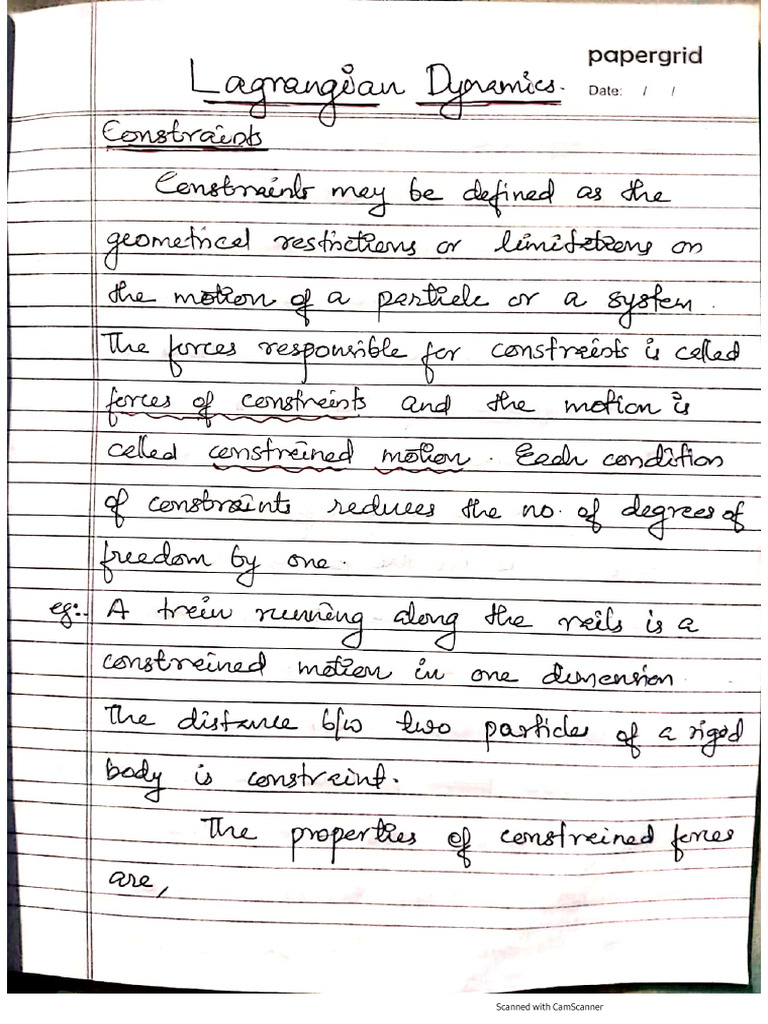 papergrid
Lagrangian Dynamics.
Date: / /
Constraints
Constraints may be defined as the
geometrical restrictions or limitations on
the motion of a particle or a system.
The forces responsible for constraints is called
forces of constraints and the motion is
called constrained motion. Each condition
of constraints reduces the no. of degrees of
freedom by one.
eg:- A train running along the rails is a
constrained motion in one dimension
The distance b/w two particles of a rigod
body is constraint.
The properties of constrained forces
are,
Scanned with CamScanner